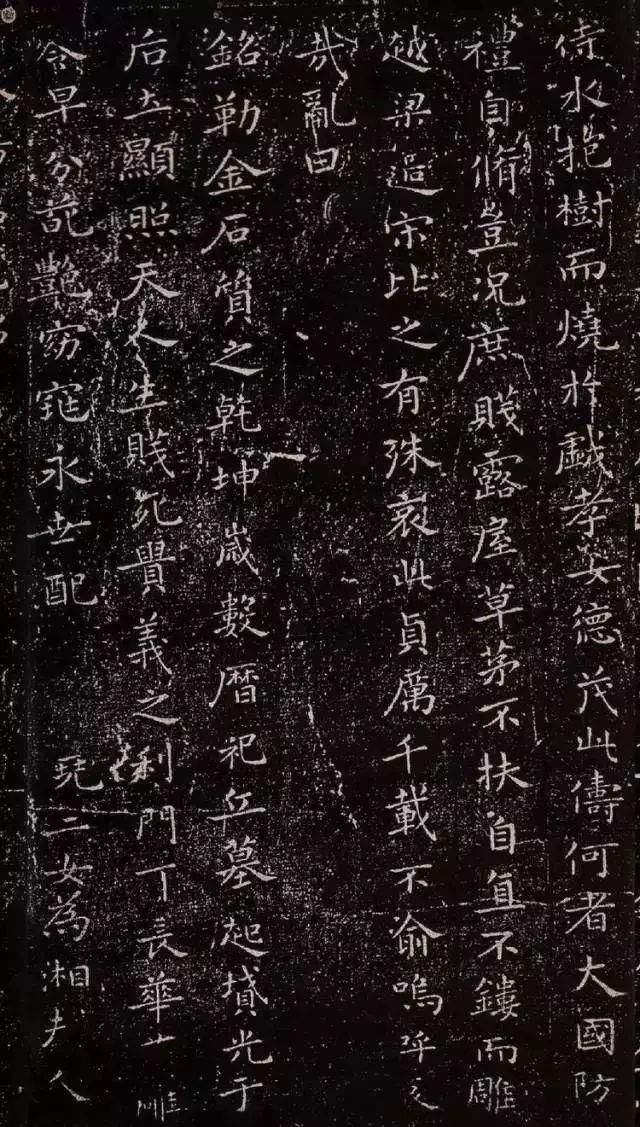 待水抱樹而燒於戲孝女德茂此儔何者大國防
禮自脩豈況庶賤露屋草茅不扶自直不鏤而雕
越梁過宋比之有殊哀此貞厲千載不渝嗚呼
哉亂曰
銘勒金石質之乾坤歲數曆祀丘墓起墳光于
后土顯照天人生賤死貴義之利門長華雕
早分葩艷窈窕永世配 堯二女為湘夫人